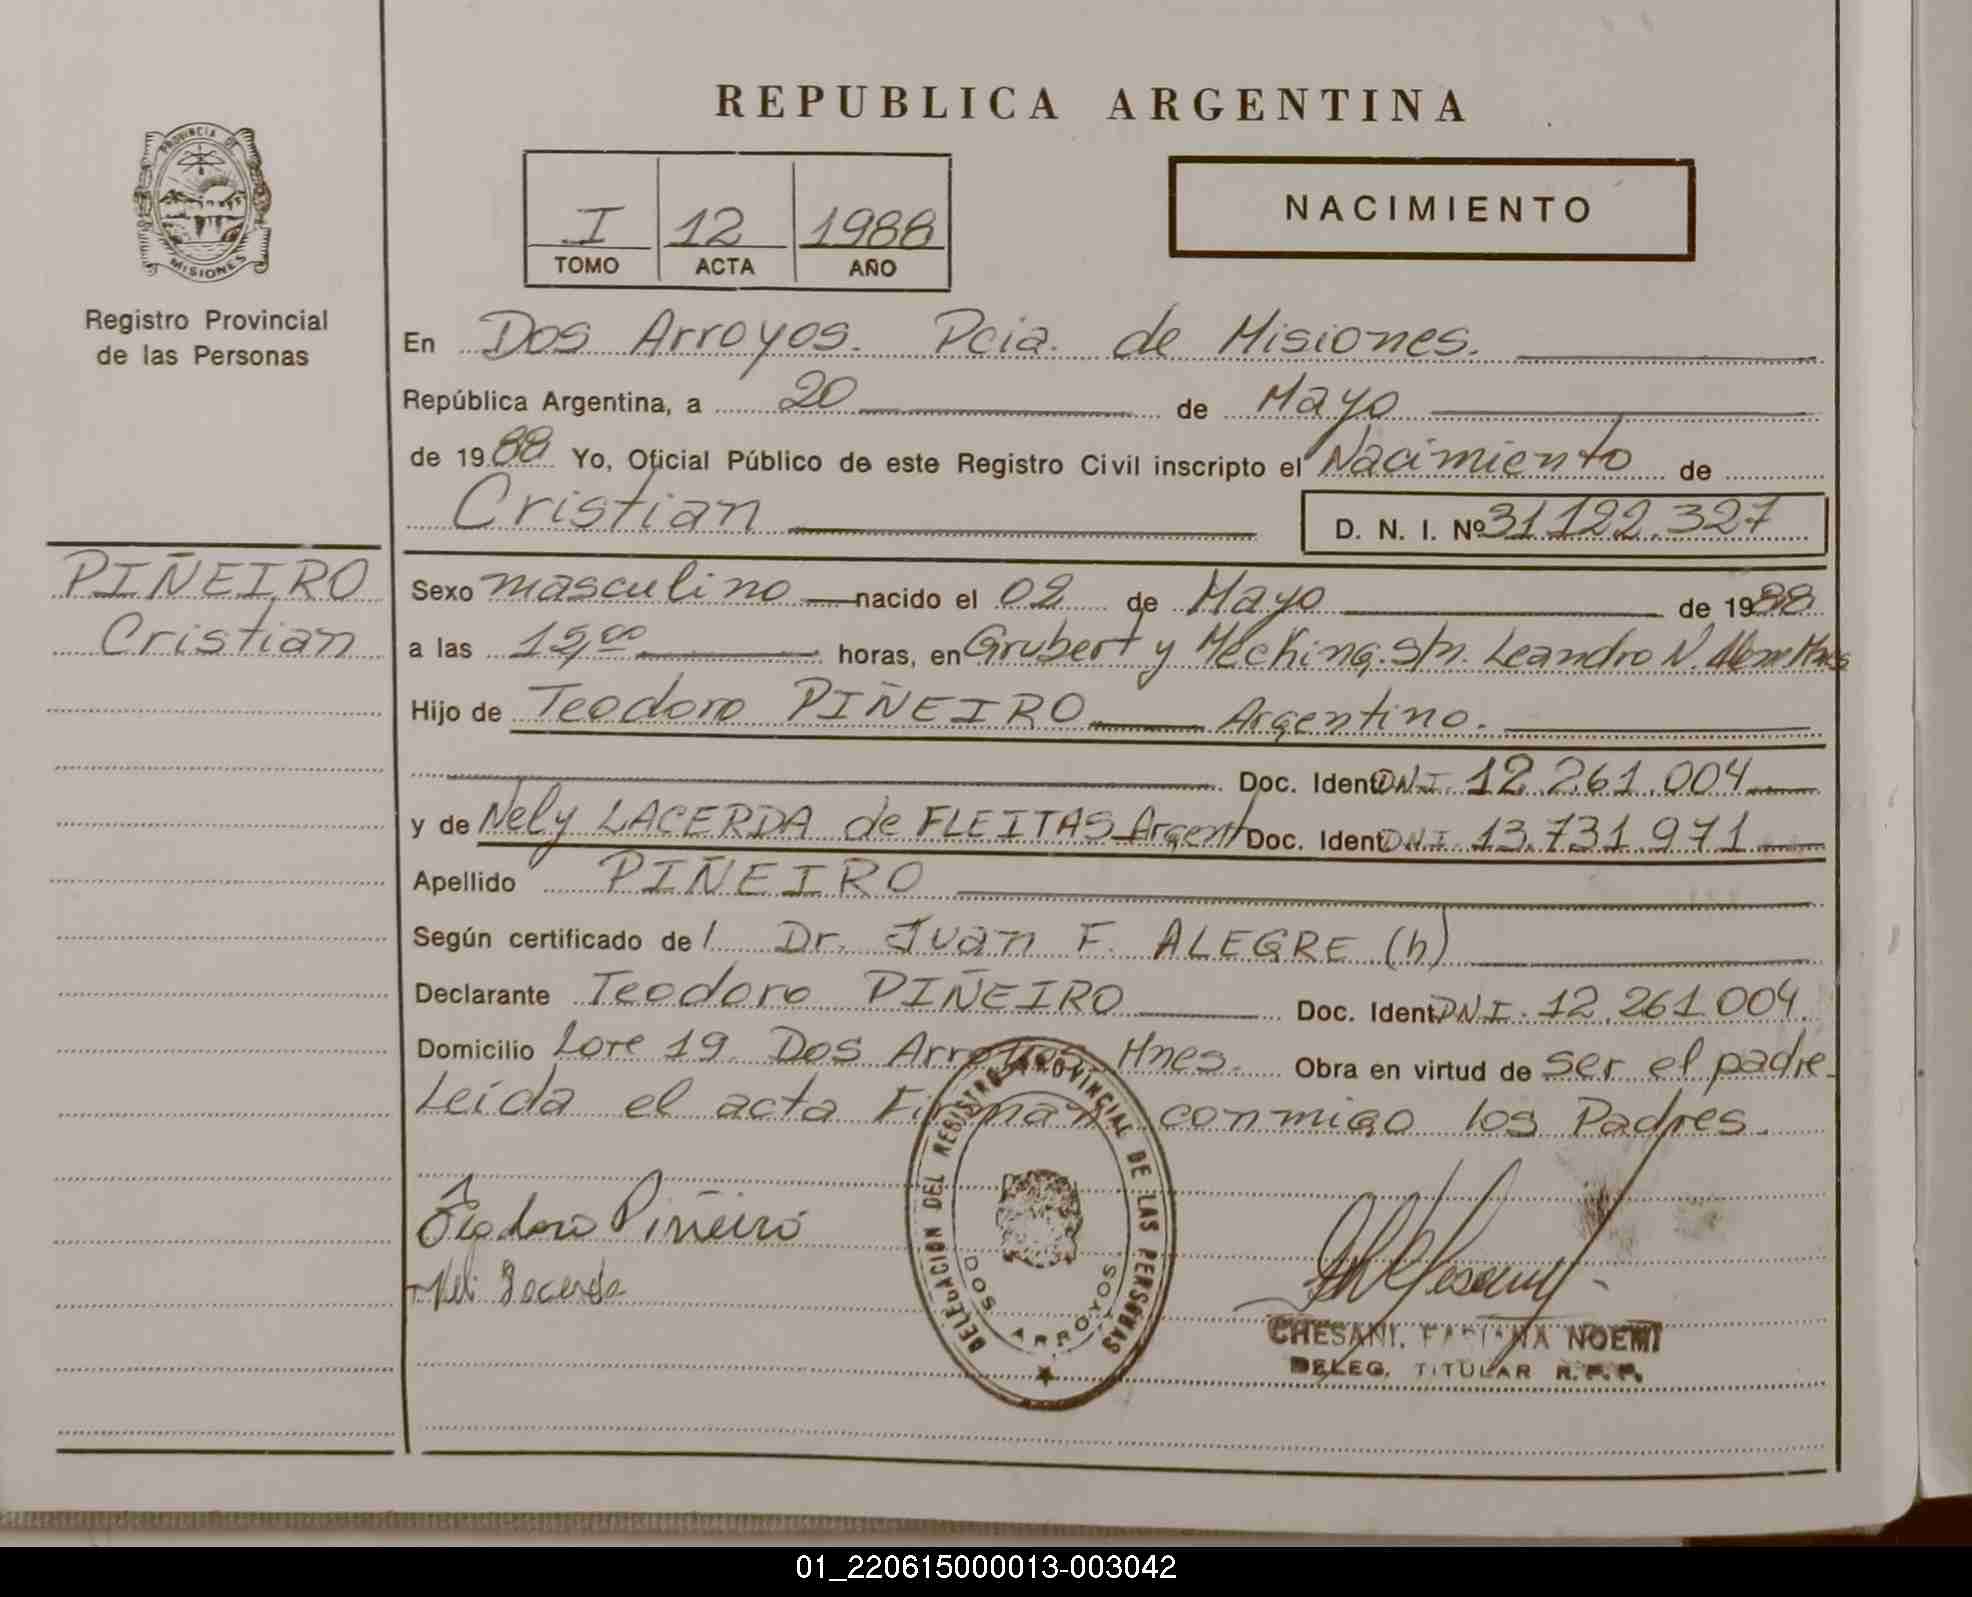 REPUBLICA ARGENTINA
PROVINCIA DE
MISIONES
Registro Provincial
de las Personas
I 12 1988
TOMO ACTA AÑO
NACIMIENTO
En Dos Arroyos. Pcia. de Misiones.
República Argentina, a 20 de Mayo
de 1988 Yo, Oficial Público de este Registro Civil inscripto el Nacimiento de
Cristian D. N. I. Nº 31.122.327
PIÑEIRO
Cristian
Sexo masculino nacido el 02 de Mayo de 1988
a las 15,00 horas, en Grubert y Mecking. s/n. Leandro N. Alem Mnes
Hijo de Teodoro PIÑEIRO Argentino.
Doc. Ident. D.N.I. 12.261.004
y de Nely LACERDA de FLEITAS Argent Doc. Ident. D.N.I. 13.731.971
Apellido PIÑEIRO
Según certificado de l Dr. Juan F. ALEGRE (h)
Declarante Teodoro PIÑEIRO Doc. Ident. DNI. 12.261.004
Domicilio Lote 19. Dos Arroyos Mnes. Obra en virtud de ser el padre.
Leída el acta Firman conmigo los Padres.
Teodoro Piñeiro
Neli Lacerda
DELEGACION DEL REGISTRO PROVINCIAL DE LAS PERSONAS
DOS ARROYOS
CHESANI, FABIANA NOEMI
DELEG. TITULAR R.P.P.
01_220615000013-003042